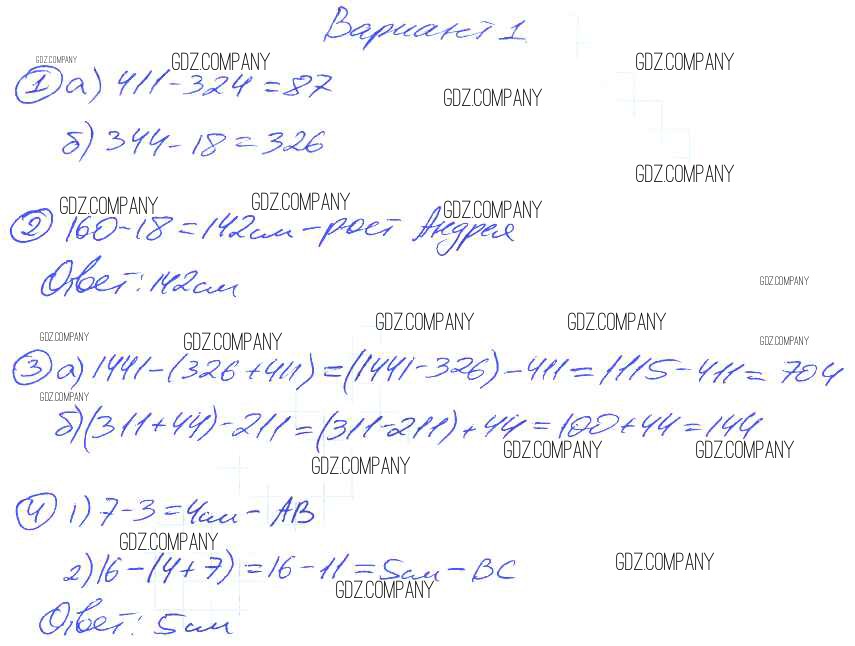 Вариант 1
GDZ.COMPANY GDZ.COMPANY GDZ.COMPANY
① а) 411-324=87
GDZ.COMPANY
б) 344-18=326
GDZ.COMPANY
GDZ.COMPANY GDZ.COMPANY GDZ.COMPANY
② 160-18=142см-рост Андрея
Ответ: 142см
GDZ.COMPANY
GDZ.COMPANY GDZ.COMPANY
GDZ.COMPANY GDZ.COMPANY GDZ.COMPANY
③ а) 1441-(326+411)=(1441-326)-411=1115-411=704
GDZ.COMPANY
б) (311+44)-211=(311-211)+44=100+44=144
GDZ.COMPANY GDZ.COMPANY
GDZ.COMPANY
④ 1) 7-3=4см-АВ
GDZ.COMPANY
2) 16-(4+7)=16-11=5см-ВС
GDZ.COMPANY
GDZ.COMPANY
Ответ: 5см